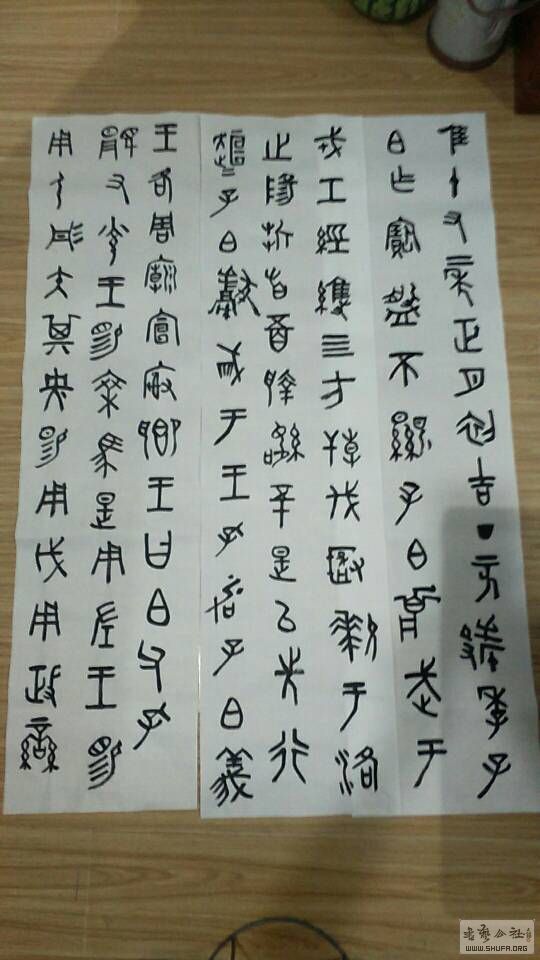 隹十又二年正月初吉丁亥虢季子
白乍寶盤不顯子白壯武于
戎工經維四方搏伐玁狁于洛
之陽折首五百執訊五十是以先行
桓桓子白獻馘于王孔加子白義
王各周廟宣廚鄉王曰白父孔
顯又光王賜乘馬是用左王賜
用弓彤矢其央賜用戉用政蠻
WWW.SHUFA.ORG